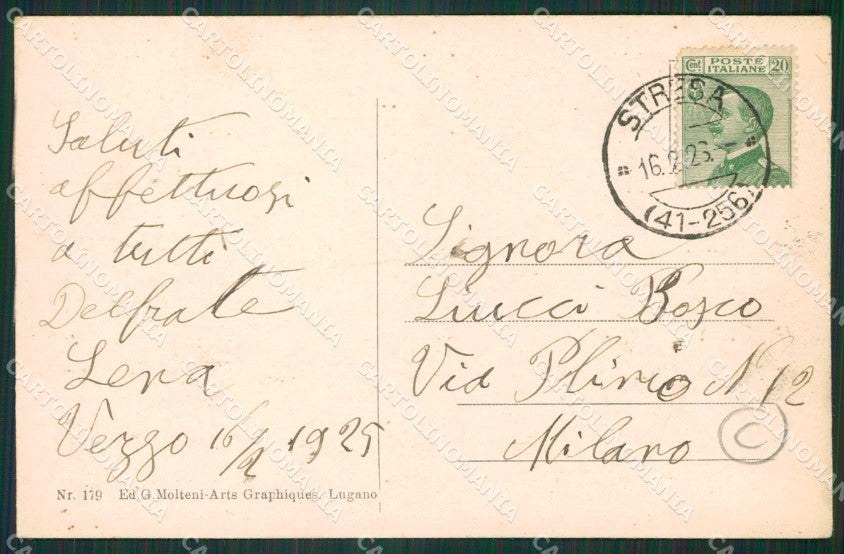 Saluti
affettuosi
a tutti
Delfrate
Lena
Vezzo 16/2 1925
Nr. 179 Ed. G. Molteni-Arts Graphiques, Lugano
Cent POSTE ITALIANE 20
STRESA
16.2.25.
(41-256)
Signora
Liucci Bosco
Via Plinio N 12
Milano
C
CARTOLINOMANIA